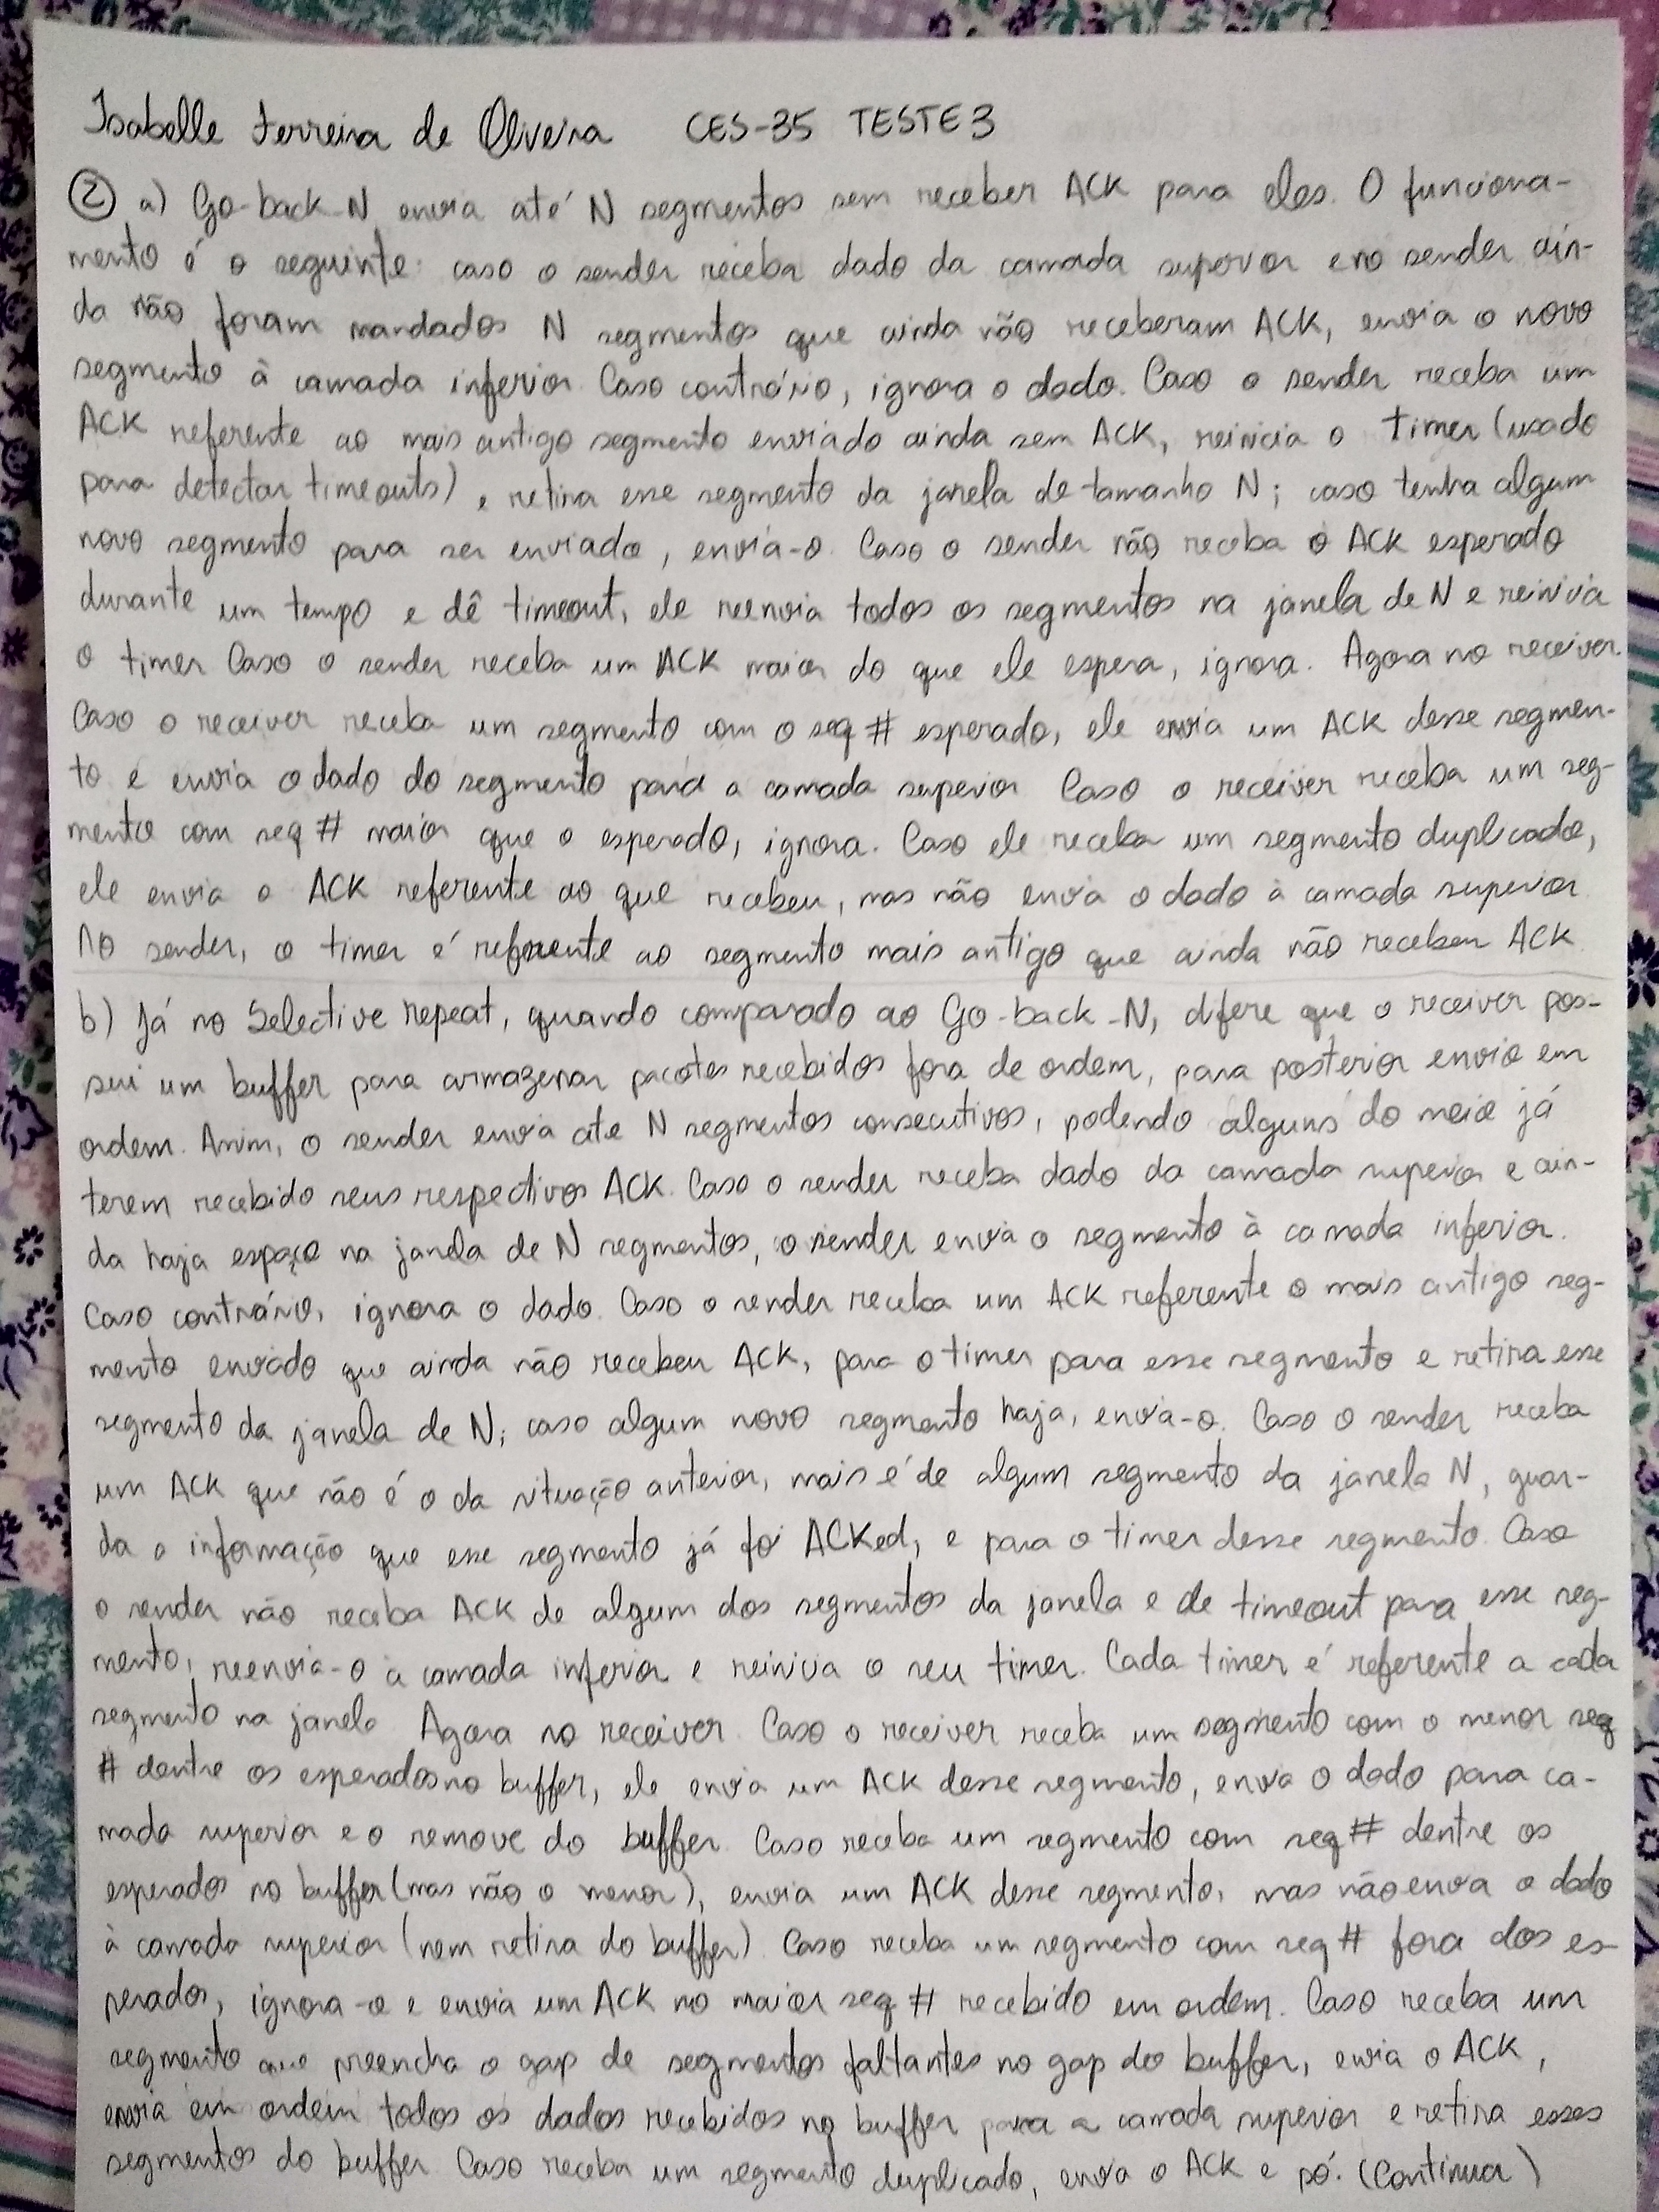 Isabelle Ferreira de Oliveira CES-35 TESTE 3
② a) Go-back-N envia até N segmentos sem receber ACK para eles. O funciona-
mento é o seguinte: caso o sender receba dado da camada superior e no sender ain-
da não foram mandados N segmentos que ainda não receberam ACK, envia o novo
segmento à camada inferior. Caso contrário, ignora o dado. Caso o sender receba um
ACK referente ao mais antigo segmento enviado ainda sem ACK, reinicia o timer (usado
para detectar timeouts), e retira esse segmento da janela de tamanho N; caso tenha algum
novo segmento para ser enviado, envia-o. Caso o sender não receba o ACK esperado
durante um tempo e dê timeout, ele reenvia todos os segmentos na janela de N e reinicia
o timer. Caso o sender receba um ACK maior do que ele espera, ignora. Agora no receiver.
Caso o receiver receba um segmento com o seq # esperado, ele envia um ACK desse segmen-
to e envia o dado do segmento para a camada superior. Caso o receiver receba um seg-
mento com seq # maior que o esperado, ignora. Caso ele receba um segmento duplicado,
ele envia o ACK referente ao que recebeu, mas não envia o dado à camada superior.
No sender, o timer é referente ao segmento mais antigo que ainda não recebeu ACK
b) Já no Selective repeat, quando comparado ao Go-back-N, difere que o receiver pos-
sui um buffer para armazenar pacotes recebidos fora de ordem, para posterior envio em
ordem. Assim, o sender envia até N segmentos consecutivos, podendo alguns do meio já
terem recebido seus respectivos ACK. Caso o sender receba dado da camada superior e ain-
da haja espaço na janela de N segmentos, o sender envia o segmento à camada inferior.
Caso contrário, ignora o dado. Caso o sender receba um ACK referente o mais antigo seg-
mento enviado que ainda não recebeu ACK, para o timer para esse segmento e retira esse
segmento da janela de N; caso algum novo segmento haja, envia-o. Caso o sender receba
um ACK que não é o da situação anterior, mais é de algum segmento da janela N, guar-
da a informação que esse segmento já foi ACKed, e para o timer desse segmento. Caso
o sender não receba ACK de algum dos segmentos da janela e de timeout para esse seg-
mento, reenvia-o à camada inferior e reinicia o seu timer. Cada timer é referente a cada
segmento na janela. Agora no receiver. Caso o receiver receba um segmento com o menor seq
# dentre os esperados no buffer, ele envia um ACK desse segmento, envia o dado para ca-
mada superior e o remove do buffer. Caso receba um segmento com seq # dentre os
esperados no buffer (mas não o menor), envia um ACK desse segmento, mas não envia o dado
à camada superior (nem retira do buffer). Caso receba um segmento com seq # fora dos es-
perados, ignora-o e envia um ACK no maior seq # recebido em ordem. Caso receba um
segmento que preencha o gap de segmentos faltantes no gap do buffer, envia o ACK,
envia em ordem todos os dados recebidos no buffer para a camada superior e retira esses
segmentos do buffer. Caso receba um segmento duplicado, envia o ACK e só. (Continua)